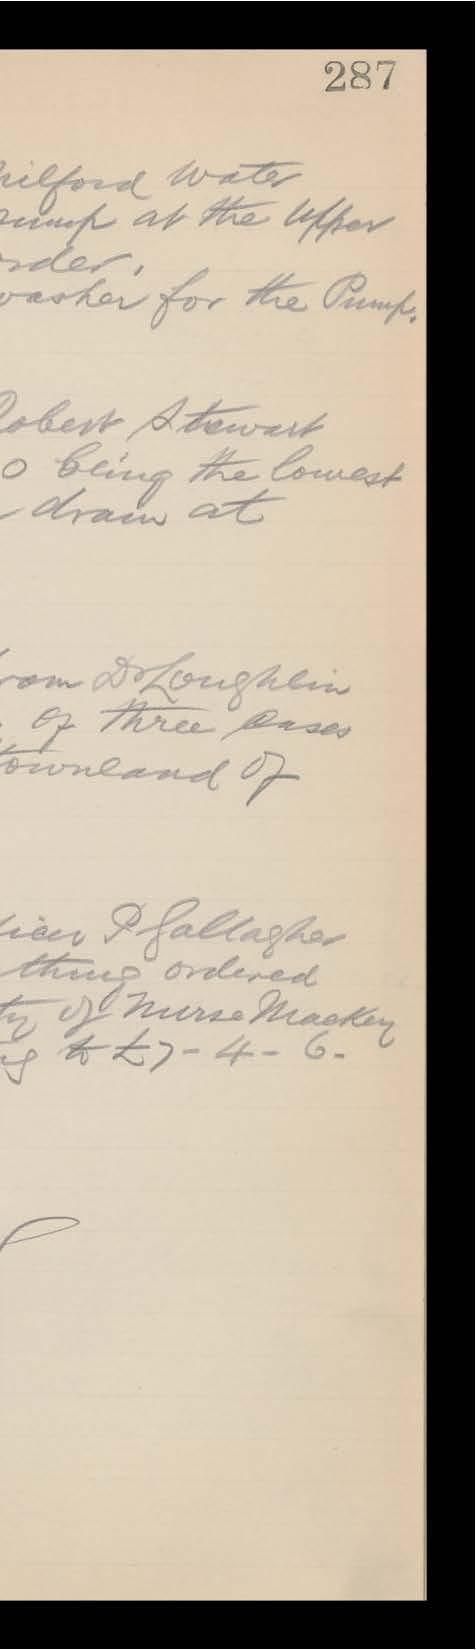 287
Milford Water
Pump at the Upper
order.
washer for the Pump.
Robert Stewart
0 being the lowest
drain at
from Dr Loughlin
of three Cases
Townland of
P Gallagher
thing ordered
ty of Nurse Mackey
ng to £7-4-6-